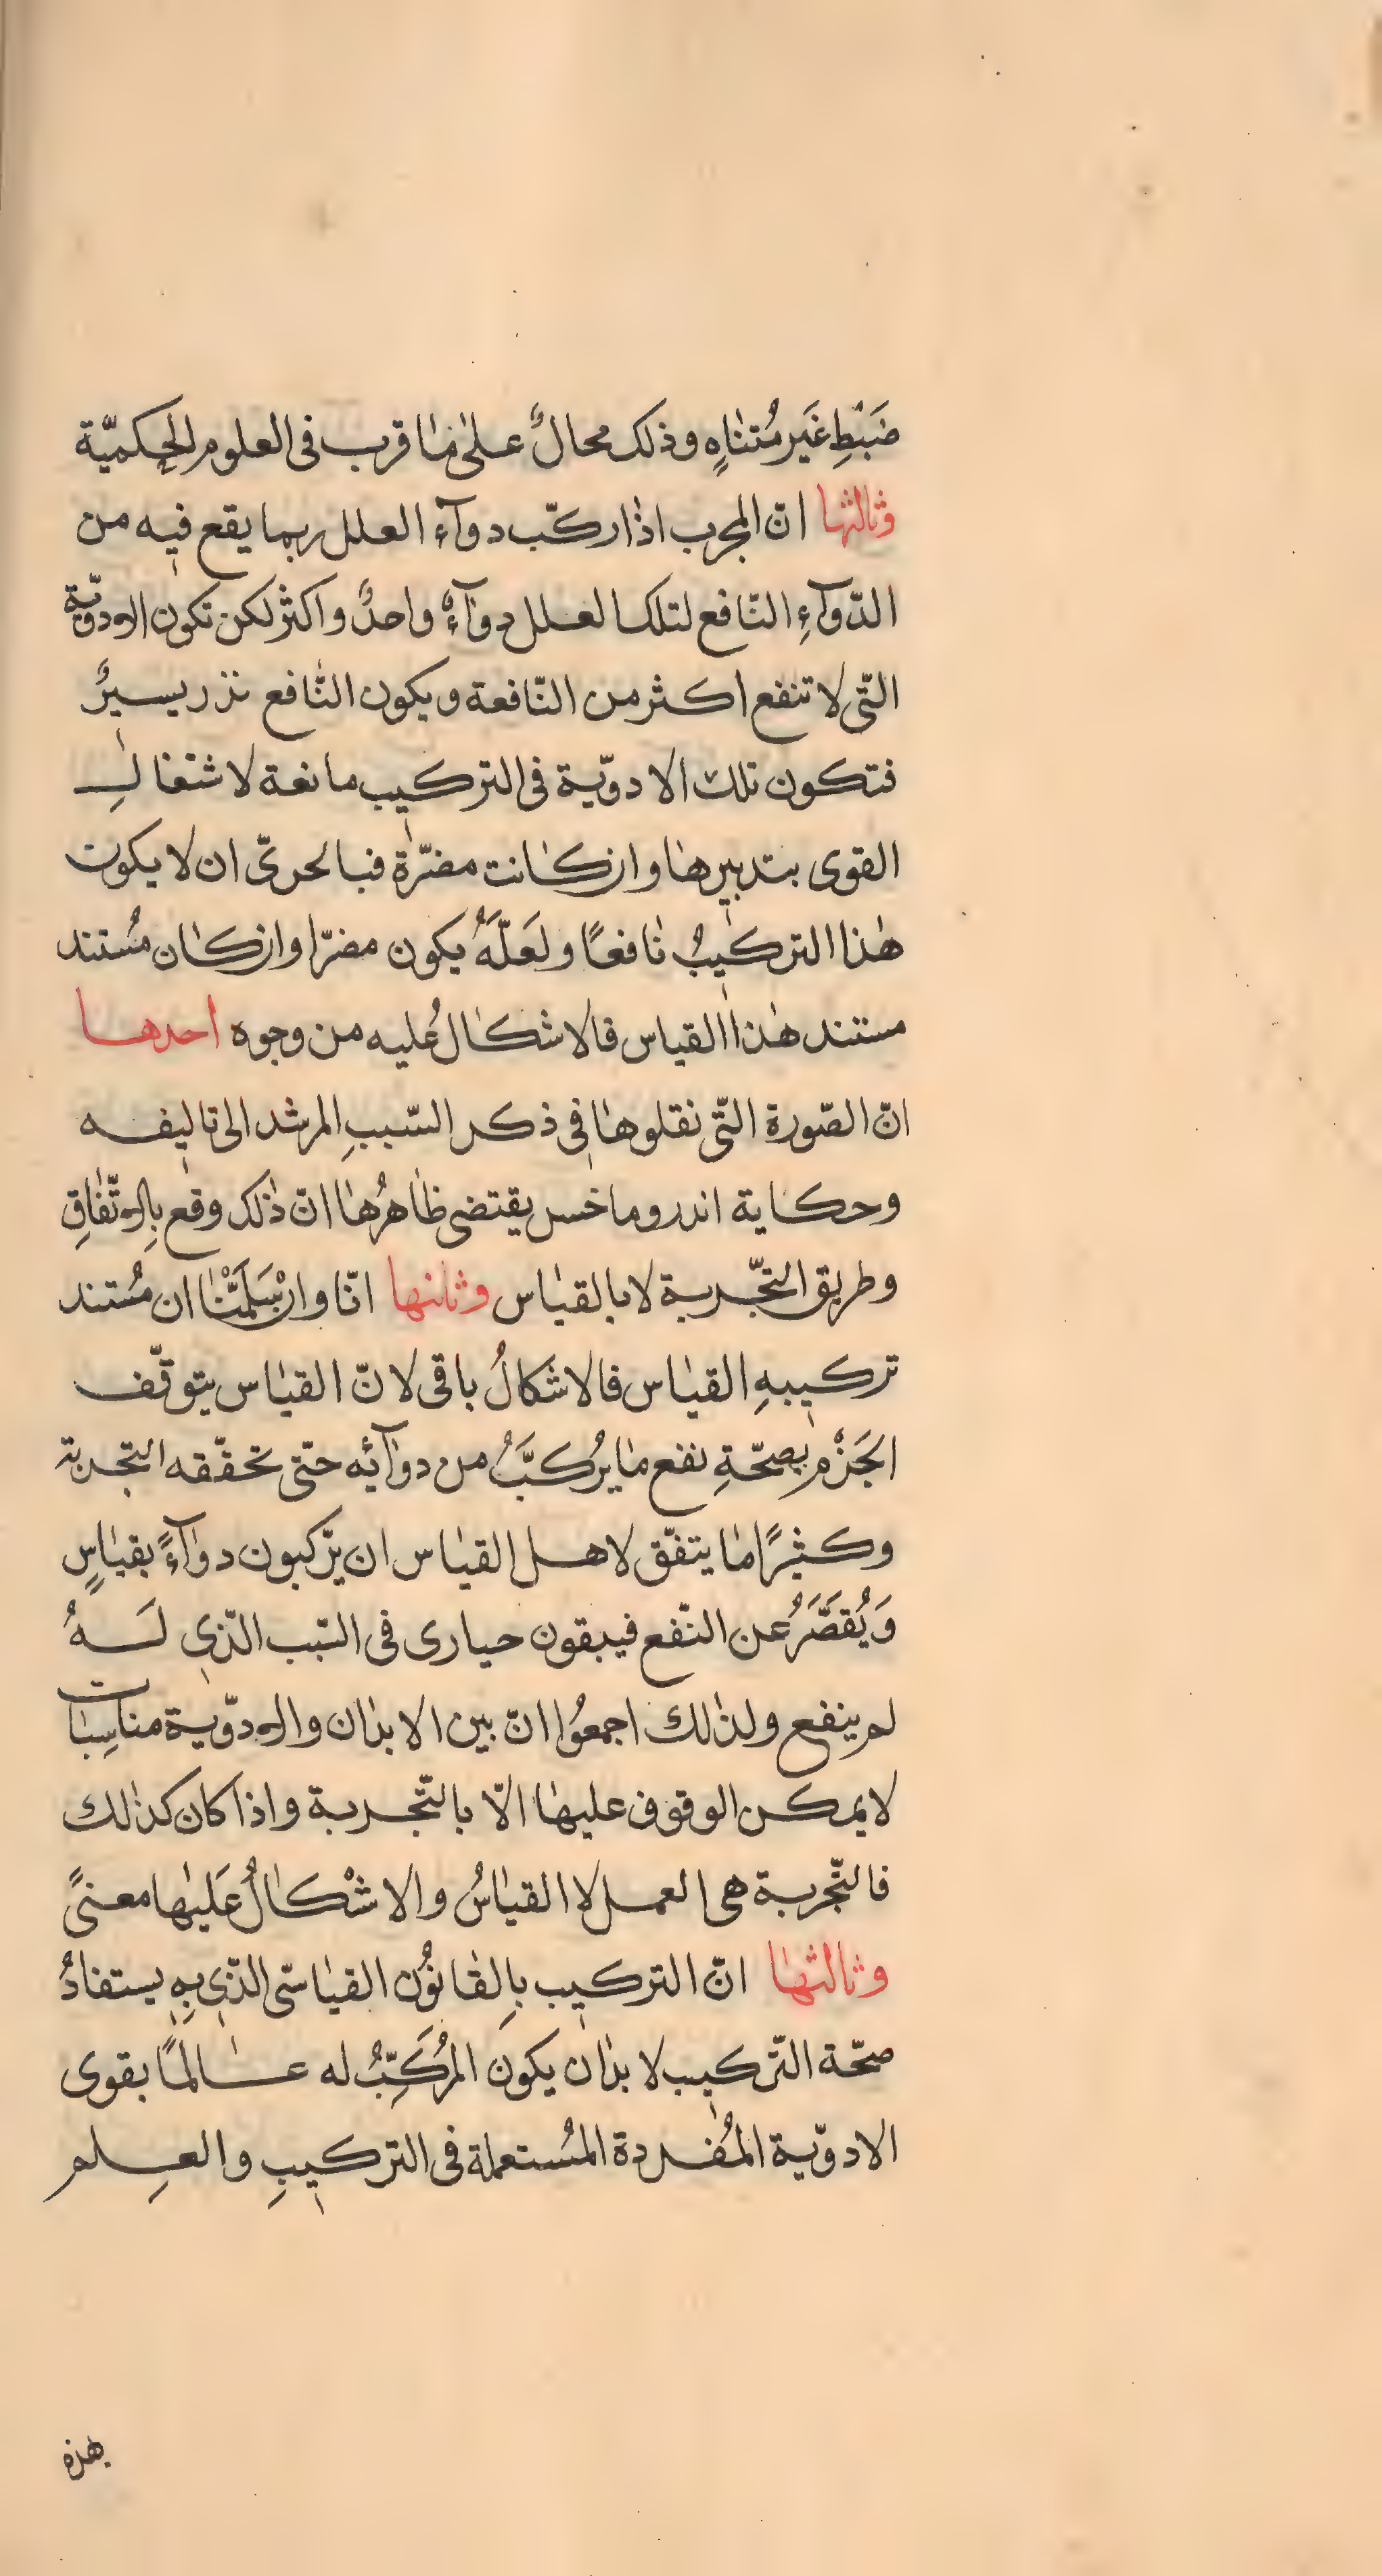 ضَبْطِ غَير مُتنٰاهٍ وذلك محالٌ علىٰ مٰا قرب فى العلوم الحِكميّة
وثالثها انّ المجرب اذٰا ركّب دوآء العلل ربما يقع فيه من
الدّوآءِ النّافع لتلك العلل دوٰآءٌ واحدٌ واكثر لكن تكون الادويّة
التّى لا تنفع اكثر من النّافعة ويكون النّافع نذر يسيرٌ
فتكون تلك الادويّة فى التركيب مانعة لاشتغالِ
القوى بتدبيرهٰا وان كٰانت مضرّة فبالحرىّ ان لا يكون
هٰذا التركيبُ نٰافعًا ولعَلّهُ يكون مضرّا وان كٰان مُستند
مستند هٰذا القياس فالاشكٰالُ عليه من وجوه احدها
انّ الصّورة التّى نقلوهٰا فى ذكر السّببِ المرشد الى تاليفه
وحكاية اندروماخس يقتضى ظٰاهرُهٰا انّ ذٰلك وقع بِالاتّفٰاقِ
وطريق التّجربة لا بالقيٰاس وثانيها انّا وان سَلّمْنٰا ان مُستند
تركيبهِ القيٰاس فالاشكالُ باقى لانّ القيٰاس يتوقّف
الجَزْم بصحّةِ نفع مٰا يُركبَّ من دوٰآئه حتّى تحقّقه التجربة
وكثيرًا مٰا يتفّق لاهل القيٰاس ان يرّكبون دوٰآءً بقيٰاسٍ
وَيُقصَّرُ عن النّفع فيبقون حيارى فى السّبب الذّى لَهُ
لم ينفع ولذٰلك اجمعُوا انّ بين الابدٰان والادوّية مناسِبٰات
لا يمكن الوقوف عليهٰا الّا بالتّجربة واذا كان كذٰلك
فالتّجربة هى العمل لا القيٰاسُ والاشْكٰالُ عَليٰها معنىً
وثٰالثهٰا انّ التركيب بِالقٰانوُن القيٰاسّى الذّى بهِ يستفادُ
صحّة التّركيب لا بدٰان يكون المُركِّبُ له عٰالمًا بقوى
الادوّية المُفردة المُستعملة فى التركيبِ والعِلم
بهذه